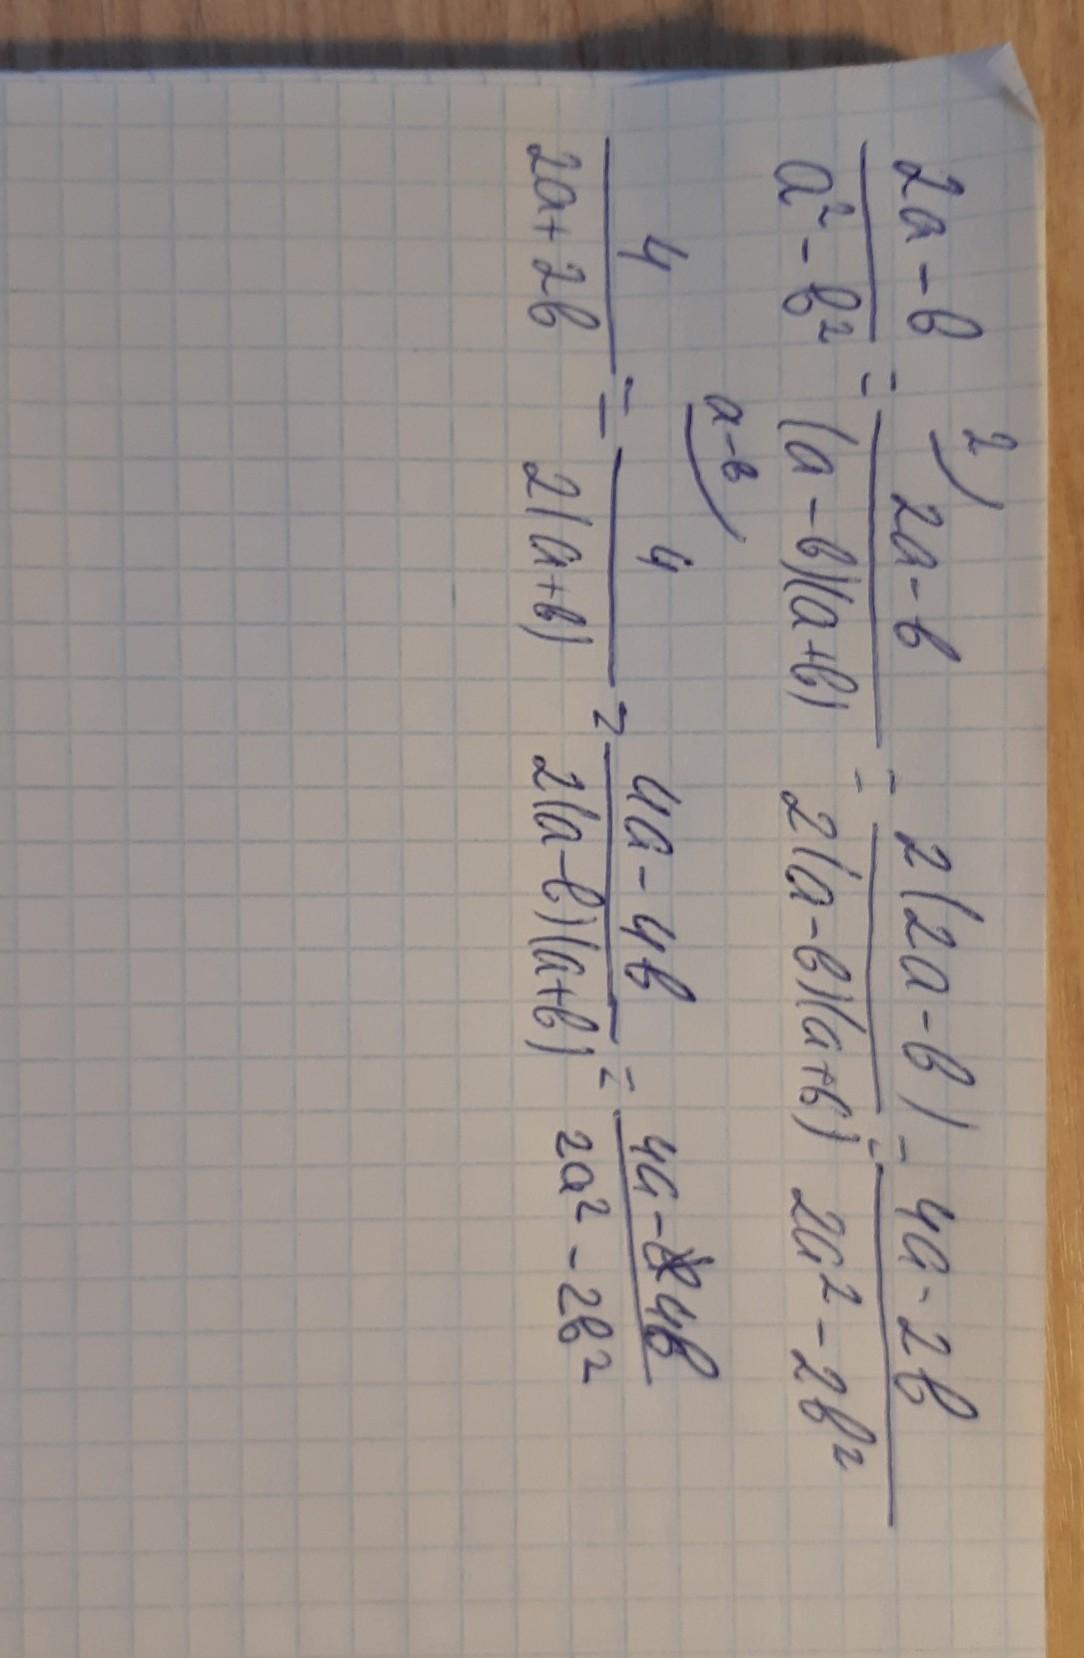 2a-b/a²-b² = 2) 2a-b/(a-b)(a+b) = 2(2a-b)/2(a-b)(a+b) = 4a-2b/2a²-2b²
4/2a+2b = a-b) 4/2(a+b) = 4a-4b/2(a-b)(a+b) = 4a-4b/2a²-2b²